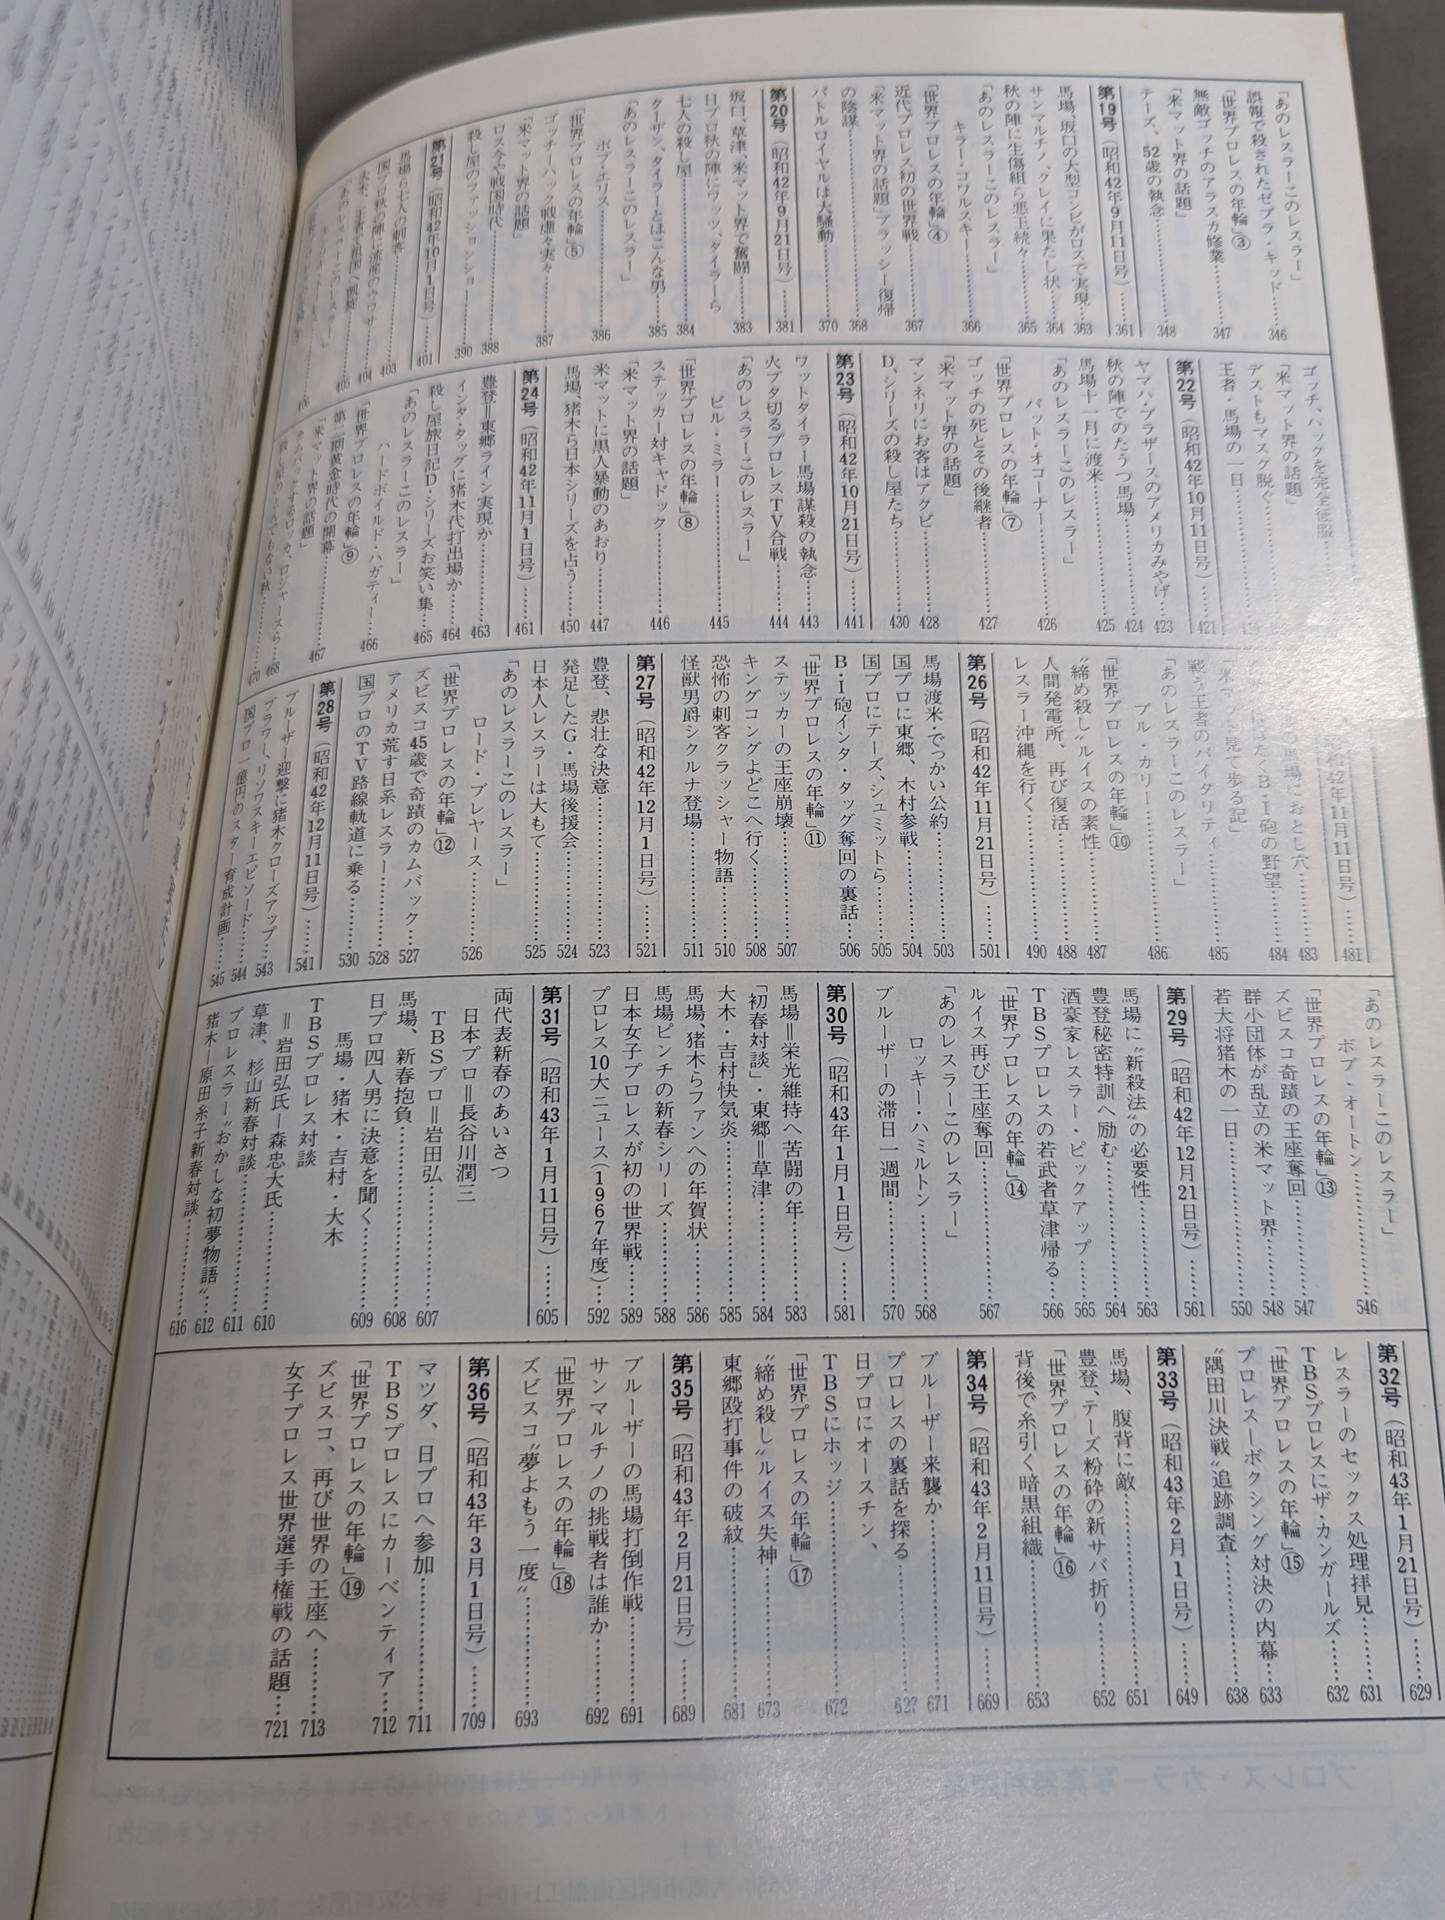 「あのレスラーこのレスラー」
誤報で殺されたゼブラ・キッド……346
「世界プロレスの年輪」③
無敵ゴッチのアラスカ修業……347
「米マット界の話題」
テーズ、52歳の執念……348
第19号（昭和42年9月11日号）……361
馬場、坂口の大型コンビがロスで実現…363
サンマルチノ、クレイに果たし状……364
秋の陣に生傷組ら悪玉続々……365
「あのレスラーこのレスラー」
キラー・コワルスキー……366
「世界プロレスの年輪」④
近代プロレス初の世界戦……367
「米マット界の話題」ブラッシー復帰
の陰謀……368
バトルロイヤルは大騒動……370
第20号（昭和42年9月21日号）……381
坂口、草津、米マット界で奮闘……383
日プロ秋の陣にワッツ、タイラーら
七人の殺し屋……384
ターザン、タイラーとはこんな男……385
「あのレスラーこのレスラー」
ボブ・エリス……386
「世界プロレスの年輪」⑤
ゴッチーハック戦虚々実々……387
「米マット界の話題」
ロス今や戦国時代……388
殺し屋のファッションショー……390
第21号（昭和42年10月1日号）……401
馬場ら七人の刺客……403
国プロ秋の陣に流産のウワサ……404
ゴッチ、ハックを完全征服
「米マット界の話題」
デストもマスク脱ぐ
王者・馬場の一日
第22号（昭和42年10月11日号）……421
ヤマハ・ブラザースのアメリカみやげ…423
秋の陣でのたうつ馬場……424
馬場十一月に渡米……425
「あのレスラーこのレスラー」
パット・オコーナー……426
「世界プロレスの年輪」⑦
ゴッチの死とその後継者……427
「米マット界の話題」
マンネリにお客はアクビ……428
D、シリーズの殺し屋たち……430
第23号（昭和42年10月21日号）……441
ワットタイラー馬場謀殺の執念……443
火ブタ切るプロレスTV合戦……444
「あのレスラーこのレスラー」
ビル・ミラー……445
「世界プロレスの年輪」⑧
ステッカー対キャドック……446
「米マット界の話題」
米マットに黒人暴動のあおり……447
馬場、猪木ら日本シリーズを占う……450
第24号（昭和42年11月1日号）……461
豊登＝東郷ライン実現か……463
インタ・タッグに猪木代打出場か……464
殺し屋旅日記D・シリーズお笑い集……465
「あのレスラーこのレスラー」
ハードボイルド・ハガティー……466
「世界プロレスの年輪」⑨
第二期黄金時代の開幕……467
「米マット界の話題」
カムバックするロッカ、ロジャースら……468
……470
昭和42年11月11日号）……481
はばたくB・I砲の野望……483
の馬場におとし穴……484
見て歩る記」
戦う王者のバイタリティ……485
「あのレスラーこのレスラー」
ブル・カリー……486
「世界プロレスの年輪」⑩
“締め殺し”ルイスの素性……487
人間発電所、再び復活……488
レスラー沖縄を行く……490
第26号（昭和42年11月21日号）……501
馬場渡米・でっかい公約……503
国プロに東郷、木村参戦……504
国プロにテーズ、シュミットら……505
B・I砲インタ・タッグ奪回の裏話……506
「世界プロレスの年輪」⑪
ステッカーの王座崩壊……507
キングコングよどこへ行く……508
恐怖の刺客クラッシャー物語……510
怪獣男爵シクルナ登場……511
第27号（昭和42年12月1日号）……521
豊登、悲壮な決意……523
発足したG・馬場後援会……524
日本人レスラーは大もて……525
「あのレスラーこのレスラー」
ロード・ブレヤース……526
「世界プロレスの年輪」⑫
ズビスコ45歳で奇蹟のカムバック……527
アメリカ荒す日系レスラー……528
国プロのTV路線軌道に乗る……530
第28号（昭和42年12月11日号）……541
ブルーザー迎撃に猪木クローズアップ…543
ブラワー、リソワスキーエピソード……544
国プロ一億円のスター育成計画……545
「あのレスラーこのレスラー」
ボブ・オートン……546
「世界プロレスの年輪」⑬
ズビスコ奇蹟の王座奪回……547
群小団体が乱立の米マット界……548
若大将猪木の一日……550
第29号（昭和42年12月21日号）……561
馬場に“新殺法”の必要性……563
豊登秘密特訓へ励む……564
酒豪家レスラー・ピックアップ……565
TBSプロレスの若武者草津帰る……566
「世界プロレスの年輪」⑭
ルイス再び王座奪回……567
「あのレスラーこのレスラー」
ロッキー・ハミルトン……568
ブルーザーの滞日一週間……570
第30号（昭和43年1月1日号）……581
馬場＝栄光維持へ苦闘の年……583
「初春対談」・東郷＝草津……584
大木・吉村快気炎……585
馬場、猪木らファンへの年賀状……586
馬場ピンチの新春シリーズ……588
日本女子プロレスが初の世界戦……589
プロレス10大ニュース（1967年度）…592
第31号（昭和43年1月11日号）……605
両代表新春のあいさつ
日本プロ＝長谷川潤三
TBSプロ＝岩田弘……607
馬場、新春抱負……608
日プロ四人男に決意を聞く……609
馬場・猪木・吉村・大木
TBSプロレス対談
＝岩田弘氏ー森忠大氏……610
草津、杉山新春対談……611
プロレスラー“おかしな初夢物語”…612
猪木ー原田糸子新春対談……616
第32号（昭和43年1月21日号）……629
レスラーのセックス処理拝見……631
TBSプロレスにザ・カンガールズ……632
「世界プロレスの年輪」⑮
プロレスーボクシング対決の内幕……633
“隅田川決戦”追跡調査……638
第33号（昭和43年2月1日号）……649
馬場、腹背に敵……651
豊登、テーズ粉砕の新サバ折り……652
「世界プロレスの年輪」⑯
背後で糸引く暗黒組織……653
第34号（昭和43年2月11日号）……669
ブルーザー来襲か……671
プロレスの裏話を探る……627
日プロにオースチン、
TBSにホッジ……672
「世界プロレスの年輪」⑰
“締め殺し”ルイス失神……673
東郷殴打事件の破紋……681
第35号（昭和43年2月21日号）……689
ブルーザーの馬場打倒作戦……691
サンマルチノの挑戦者は誰か……692
「世界プロレスの年輪」⑱
ズビスコ“夢よもう一度”……693
第36号（昭和43年3月1日号）……709
マツダ、日プロへ参加……711
TBSプロレスにカーペンティア……712
「世界プロレスの年輪」⑲
ズビスコ、再び世界の王座へ……713
女子プロレス世界選手権戦の話題……721